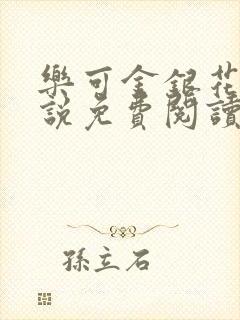 樂可金銀花
說免費閱讀
孫立石